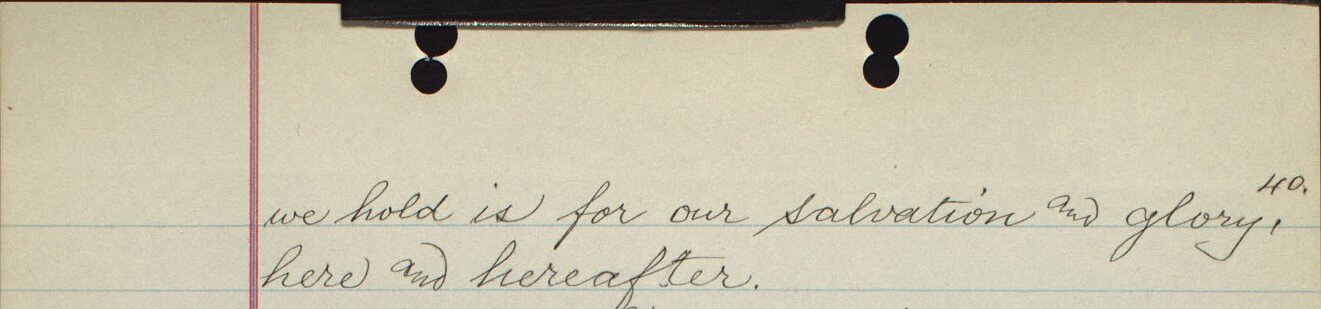 40.
we hold is for our salvation and glory,
here and hereafter.